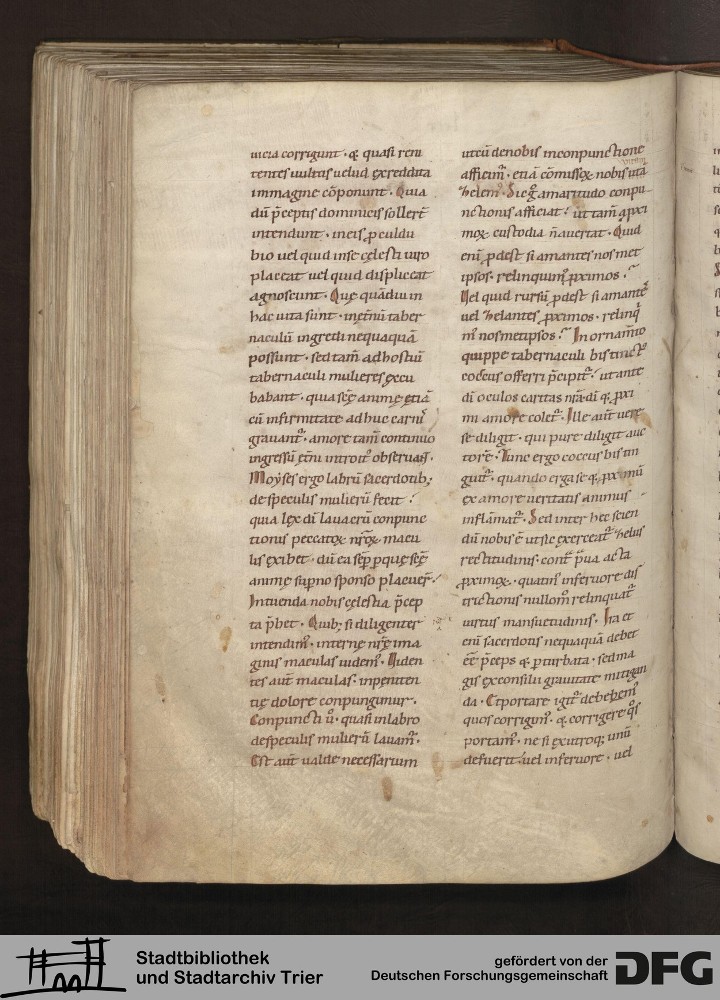 uicia corrigunt · & quasi reni
tentes uultus uelud ex reddita
immagine cōponunt · Quia
dū p̄ceptis dominicis sollert̄
intendunt · in eis ꝓcul du
bio uel quid in se cęlesti uiro
placeat uel quid displiceat
agnoscunt · Quę quādiu in
hac uita sunt · in et̄nū taber
naculū ingredi nequaquā
possunt · sed tam̄ ad hostiū
tabernaculi mulieres excu
babant · quia sc̄ę animę etiā
cū infirmitate adhuc carnis
grauant᷑ · amore tam̄ continuo
ingressū et̄ni introit᷑ obseruaN̄ ·
Moẏses ergo labrū sacerdotib;
de speculis mulierū fecit ·
quia lex dī lauacrū conpunc
tionis peccatoꝝ nr̄oꝝ macu
lis exibet · dū ea sēp ꝑ quę sc̄ę
animę sup̄no sponso placueR̄ ·
Intuenda nobis cęlestia p̄cep
ta p̄bet · Quib; si diligenter
intendim᷒ · internę nr̄ę ima
ginis maculas uidem᷒ · Uiden
tes aut̄ maculas · in peniten
tię dolore conpungimur ·
Conpuncti ū · quasi in labro
de speculis mulierū lauam᷒ ·
Est aut̄ ualde necessarium
ut cū de nobis in conpunctione
afficim᷒ · etiā cōmissoꝝ nobis uitā
zelem᷒ · Sic g̊ amaritudo conpu
nctionis afficiat · ut tam̄ a ꝓxi
moꝝ custodia n̄ auertat · Quid
enī ꝓdest si amantes nosmet
ipsos · relinquim᷒ ꝓximos ·
Uel quid rursū ꝓdest si amantes
uel zelantes ꝓximos · relinq
m᷒ nosmetipsos · In ornam̄to
quippe tabernaculi bis tinct᷒
coccus offerri p̄cipit᷑ · ut ante
dī oculos caritas nr̄a dī & ꝓxi
mi amore colet᷑ · Ille aut̄ uere
se diligit · qui pure diligit auc
torē · Tunc ergo coccus bis tin
guit᷑ · quando erga se & ꝓximū
ex amore ueritatis animus
inflāmat᷑ · Sed inter hec scien
dū nobis ē ut sic exerceat᷑ zelus
rectitudinis · cont̄ p̄ua acta
ꝓximoꝝ · quatin᷒ in feruore dis
trictionis nullom̄ relinquat᷑
uirtus mansuetudinis · Ira et
enī sacerdotis nequaquā debet
eē p̄ceps & ꝑturbata · sed ma
gis ex consilii grauitate mitigan
da · Et portare igit᷑ debem᷒
quos corrigim᷒ · & corrigere q̊s
portam᷒ · ne si ex utroq; unū
defuerit · uel in feruore · uel
Stadtbibliothek
und Stadtarchiv Trier
gefördert von der
Deutschen Forschungsgemeinschaft
DFG